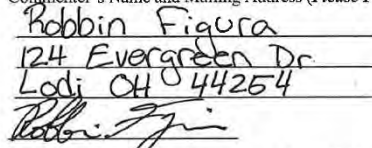 Commenter's Name and Mailing Address (Please P
Robbin Figura
124 Evergreen Dr.
Lodi OH 44254
Robbin Figura